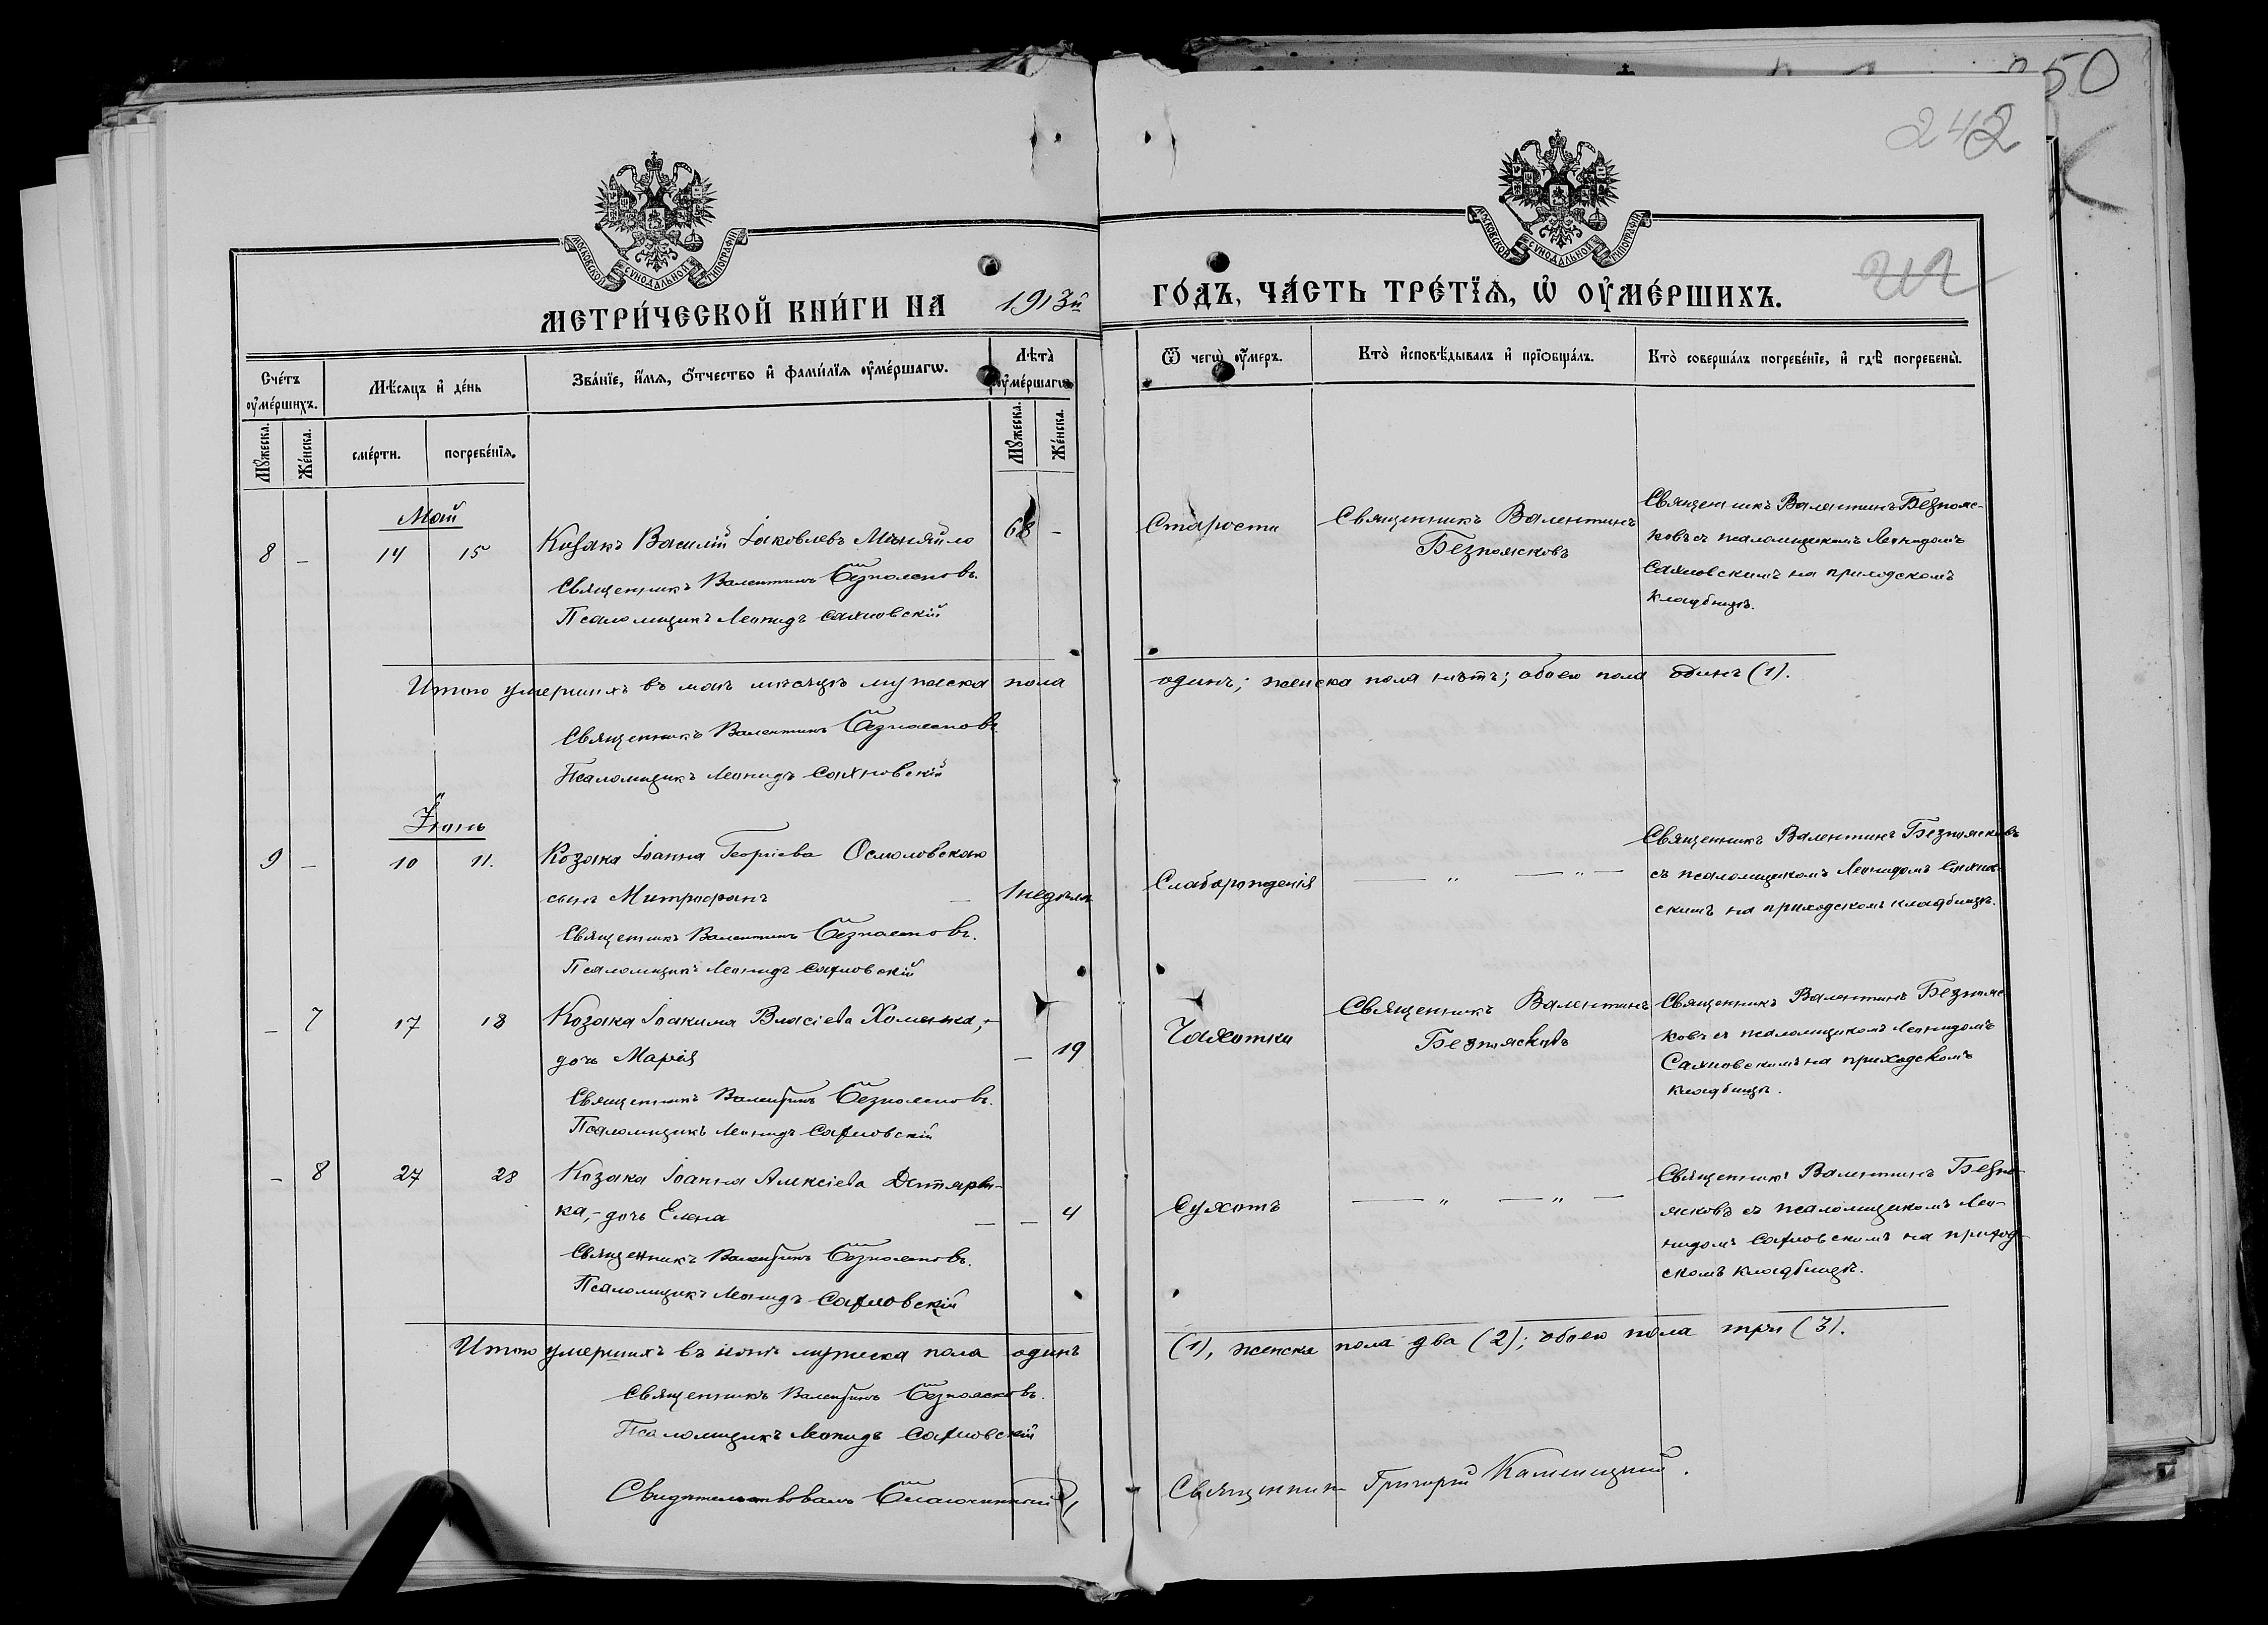 250
242
МОСКОВСКОЙ СѴНОДАЛЬНОЙ ТИПОГРАФІИ
МОСКОВСКОЙ СѴНОДАЛЬНОЙ ТИПОГРАФІИ
МЕТРИ́ЧЕСКОЙ КНИ́ГИ НА 1913й ГО́ДЪ, ЧА́СТЬ ТРЕ́ТЇѦ, Ѡ҆ ОУ҆МЕ́РШИХЪ.
Сче́тъ оу҆ме́ршихъ.
Мѣ́сяцъ и҆ де́нь
Зва́нїе, и҆́мя, ѻ҆́тчество и҆ фами́лїя оу҆ме́ршагѡ.
Лѣ́та оу҆ме́ршагѡ
Ѿ чегѡ̀ оу҆́меръ.
Кто̀ и҆сповѣ́дывалъ и҆ прїобща́лъ.
Кто̀ соверша́лъ погребе́нїе, и҆ гдѣ̀ погребены̀.
Мꙋ́жеска.
Же́нска.
сме́рти.
погребе́нїя.
Мꙋ́жеска.
Же́нска.
Май
8 – 14 15 Козакъ Василій Іаковлевъ Миняйло 68 –
Священникъ Валентинъ Безпоясковъ.
Псаломщикъ Леонидъ Сахновскій
Старости
Священникъ Валентинъ
Безпоясковъ
Священникъ Валентинъ Безпояс-
ковъ съ псаломщикомъ Леонидомъ
Сахновскимъ на приходскомъ
кладбищѣ.
Итого умершихъ въ маѣ мѣсяцѣ мужеска пола одинъ; женска пола нѣтъ; обоего пола одинъ (1).
Священникъ Валентинъ Безпоясковъ.
Псаломщикъ Леонидъ Сахновскій
Іюнь
9 – 10 11. Козака Іоанна Георгіева Осмоловскаго
сынъ Митрофанъ – 1 недѣля
Священникъ Валентинъ Безпоясковъ.
Псаломщикъ Леонидъ Сахновскій
Слаборожденія
— „ — „ —
Священникъ Валентинъ Безпоясковъ
съ псаломщикомъ Леонидомъ Сахнов-
скимъ на приходскомъ кладбищѣ.
– 7 17 18 Козака Іоакима Власіева Хоменка,-
дочь Марія – 19
Священникъ Валентинъ Безпоясковъ.
Псаломщикъ Леонидъ Сахновскій
Чахотки
Священникъ Валентинъ
Безпоясковъ
Священникъ Валентинъ Безпояс-
ковъ съ псаломщикомъ Леонидомъ
Сахновскимъ на приходскомъ
кладбищѣ.
– 8 27 28 Козака Іоанна Алексіева Дегтярен-
ка,- дочь Елена – – 4
Священникъ Валентинъ Безпоясковъ.
Псаломщикъ Леонидъ Сахновскій
Сухотъ
— „ — „ —
Священникъ Валентинъ Безпо-
ясковъ съ псаломщикомъ Лео-
нидомъ Сахновскимъ на приход-
скомъ кладбищѣ.
Итого умершихъ въ іюнѣ мужеска пола одинъ (1), женска пола два (2); обоего пола три (3).
Священникъ Валентинъ Безпоясковъ.
Псаломщикъ Леонидъ Сахновскій
Свидѣтельствовалъ Благочинный, Священникъ Григорій Каменецкій.